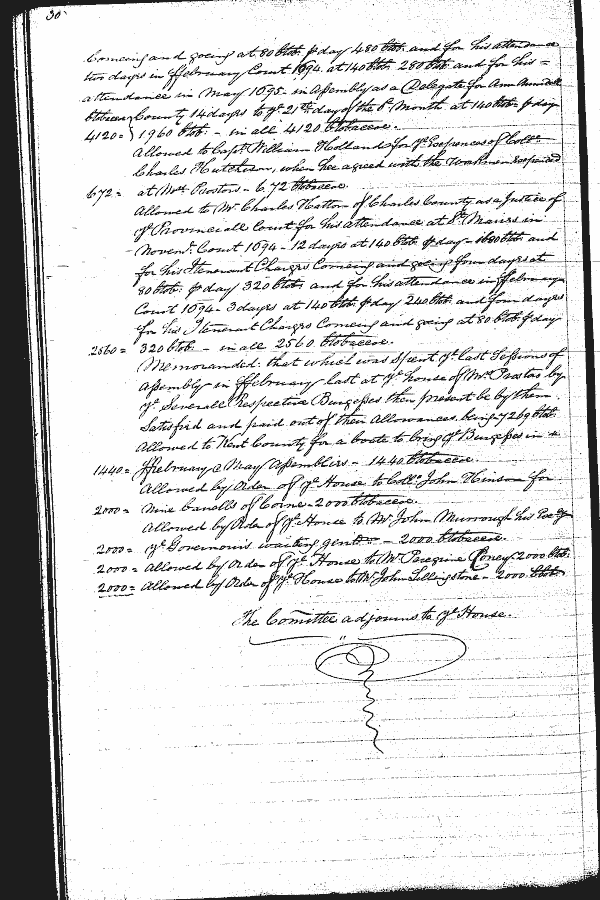 30
Comeing and going at 80 lb tob: p day 480 lb tob: and for his attendance
two dayes in ffebruary Court 1694. at 140 lb tob: 280 lb tob: and for his =
attendance in May 1695. in Assembly as a Delegate for Ann Arundell
lb tobaccoe County 14 dayes to ye 21th day of the 6th Month at 140 lb tob: p day
4120 = } 1960 lb tob: - in all 4120 lb tobaccoe.
Allowed to Capt. William Holland for ye Expences of Collo
Charles Hutchison, when hee agreed with the
672 = at Mrs. - 672 lb tobaccoe
Allowed to Mr. Charles Hatton of Charles County as a Justice of
ye Provinciall Court for his attendance at St. Maries in
Novemr. Court 1694 - 12 dayes at 140 lb tob: p day - 1680 lb tob: and
for his Itenerant Charges Comeing and going four dayes at
80 lb tob: p day 320 lb tob: and for his attendance in ffebruary
Court 1694 - 3 dayes at 140 lb tob: p day 240 lb tob: and four dayes
for his Itenerant Charges Comeing and going at 80 lb tob: p day
2560 = 320 lb tob: - in all 2560 lb tobaccoe.
Memorand: that which was Spent ye last Sessions of
Assembly in ffebruary last at ye house of Mrs. by
ye Severall Respective Burgesses then present be by them
Satisfied and paid out of their Allowances being 7269 lb tob:
Allowed to Kent County for a boate to bring ye Burgesses in
1440 = ffebruary & May Assemblies - 1440 lb tobaccoe.
Allowed by Order of ye House to Collo. John Hinson for
2000 = Nine barells of Corne - 2000 lb tobaccoe.
Allowed by Order of ye House to Mr. John Murrough his Exy
2000 = ye Governours waiting gent: - 2000 lb tobaccoe.
2000 = Allowed by Order of ye House to Mr. Peregrine 2000 lb tob:
2000 = Allowed by Order of ye House to Mr. John Lillingstone - 2000 lb tob:
The Comittee adjourns to ye House.